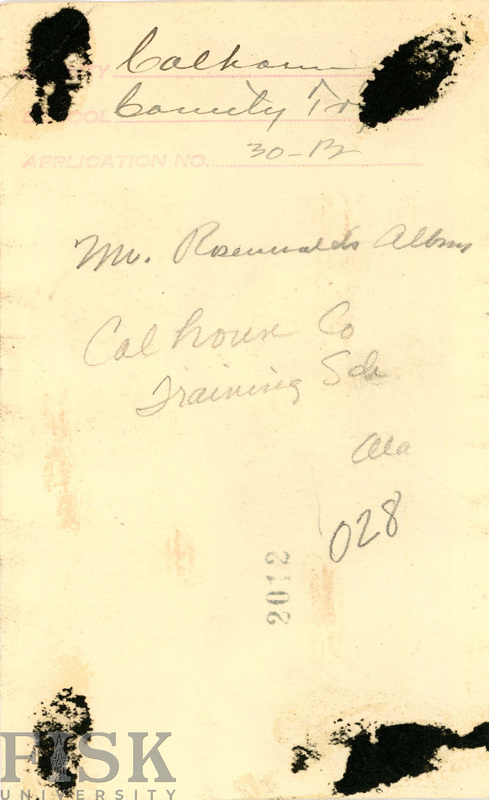 Calhoun
County Tr
APPLICATION NO. 30-B
Mr. Rosenwald's Album
Calhoun Co
Training Sch
Ala
028
2012
FISK
UNIVERSITY